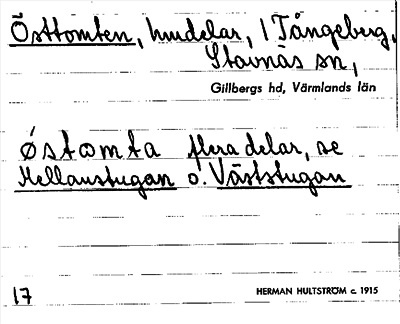 Östtomten, hmdelar, i Tångeberg,
Stavnäs sn,
Gillbergs hd, Värmlands län
östωmta flera delar, se
Mellanstugan o. Väststugan
17 HERMAN HULTSTRÖM c. 1915